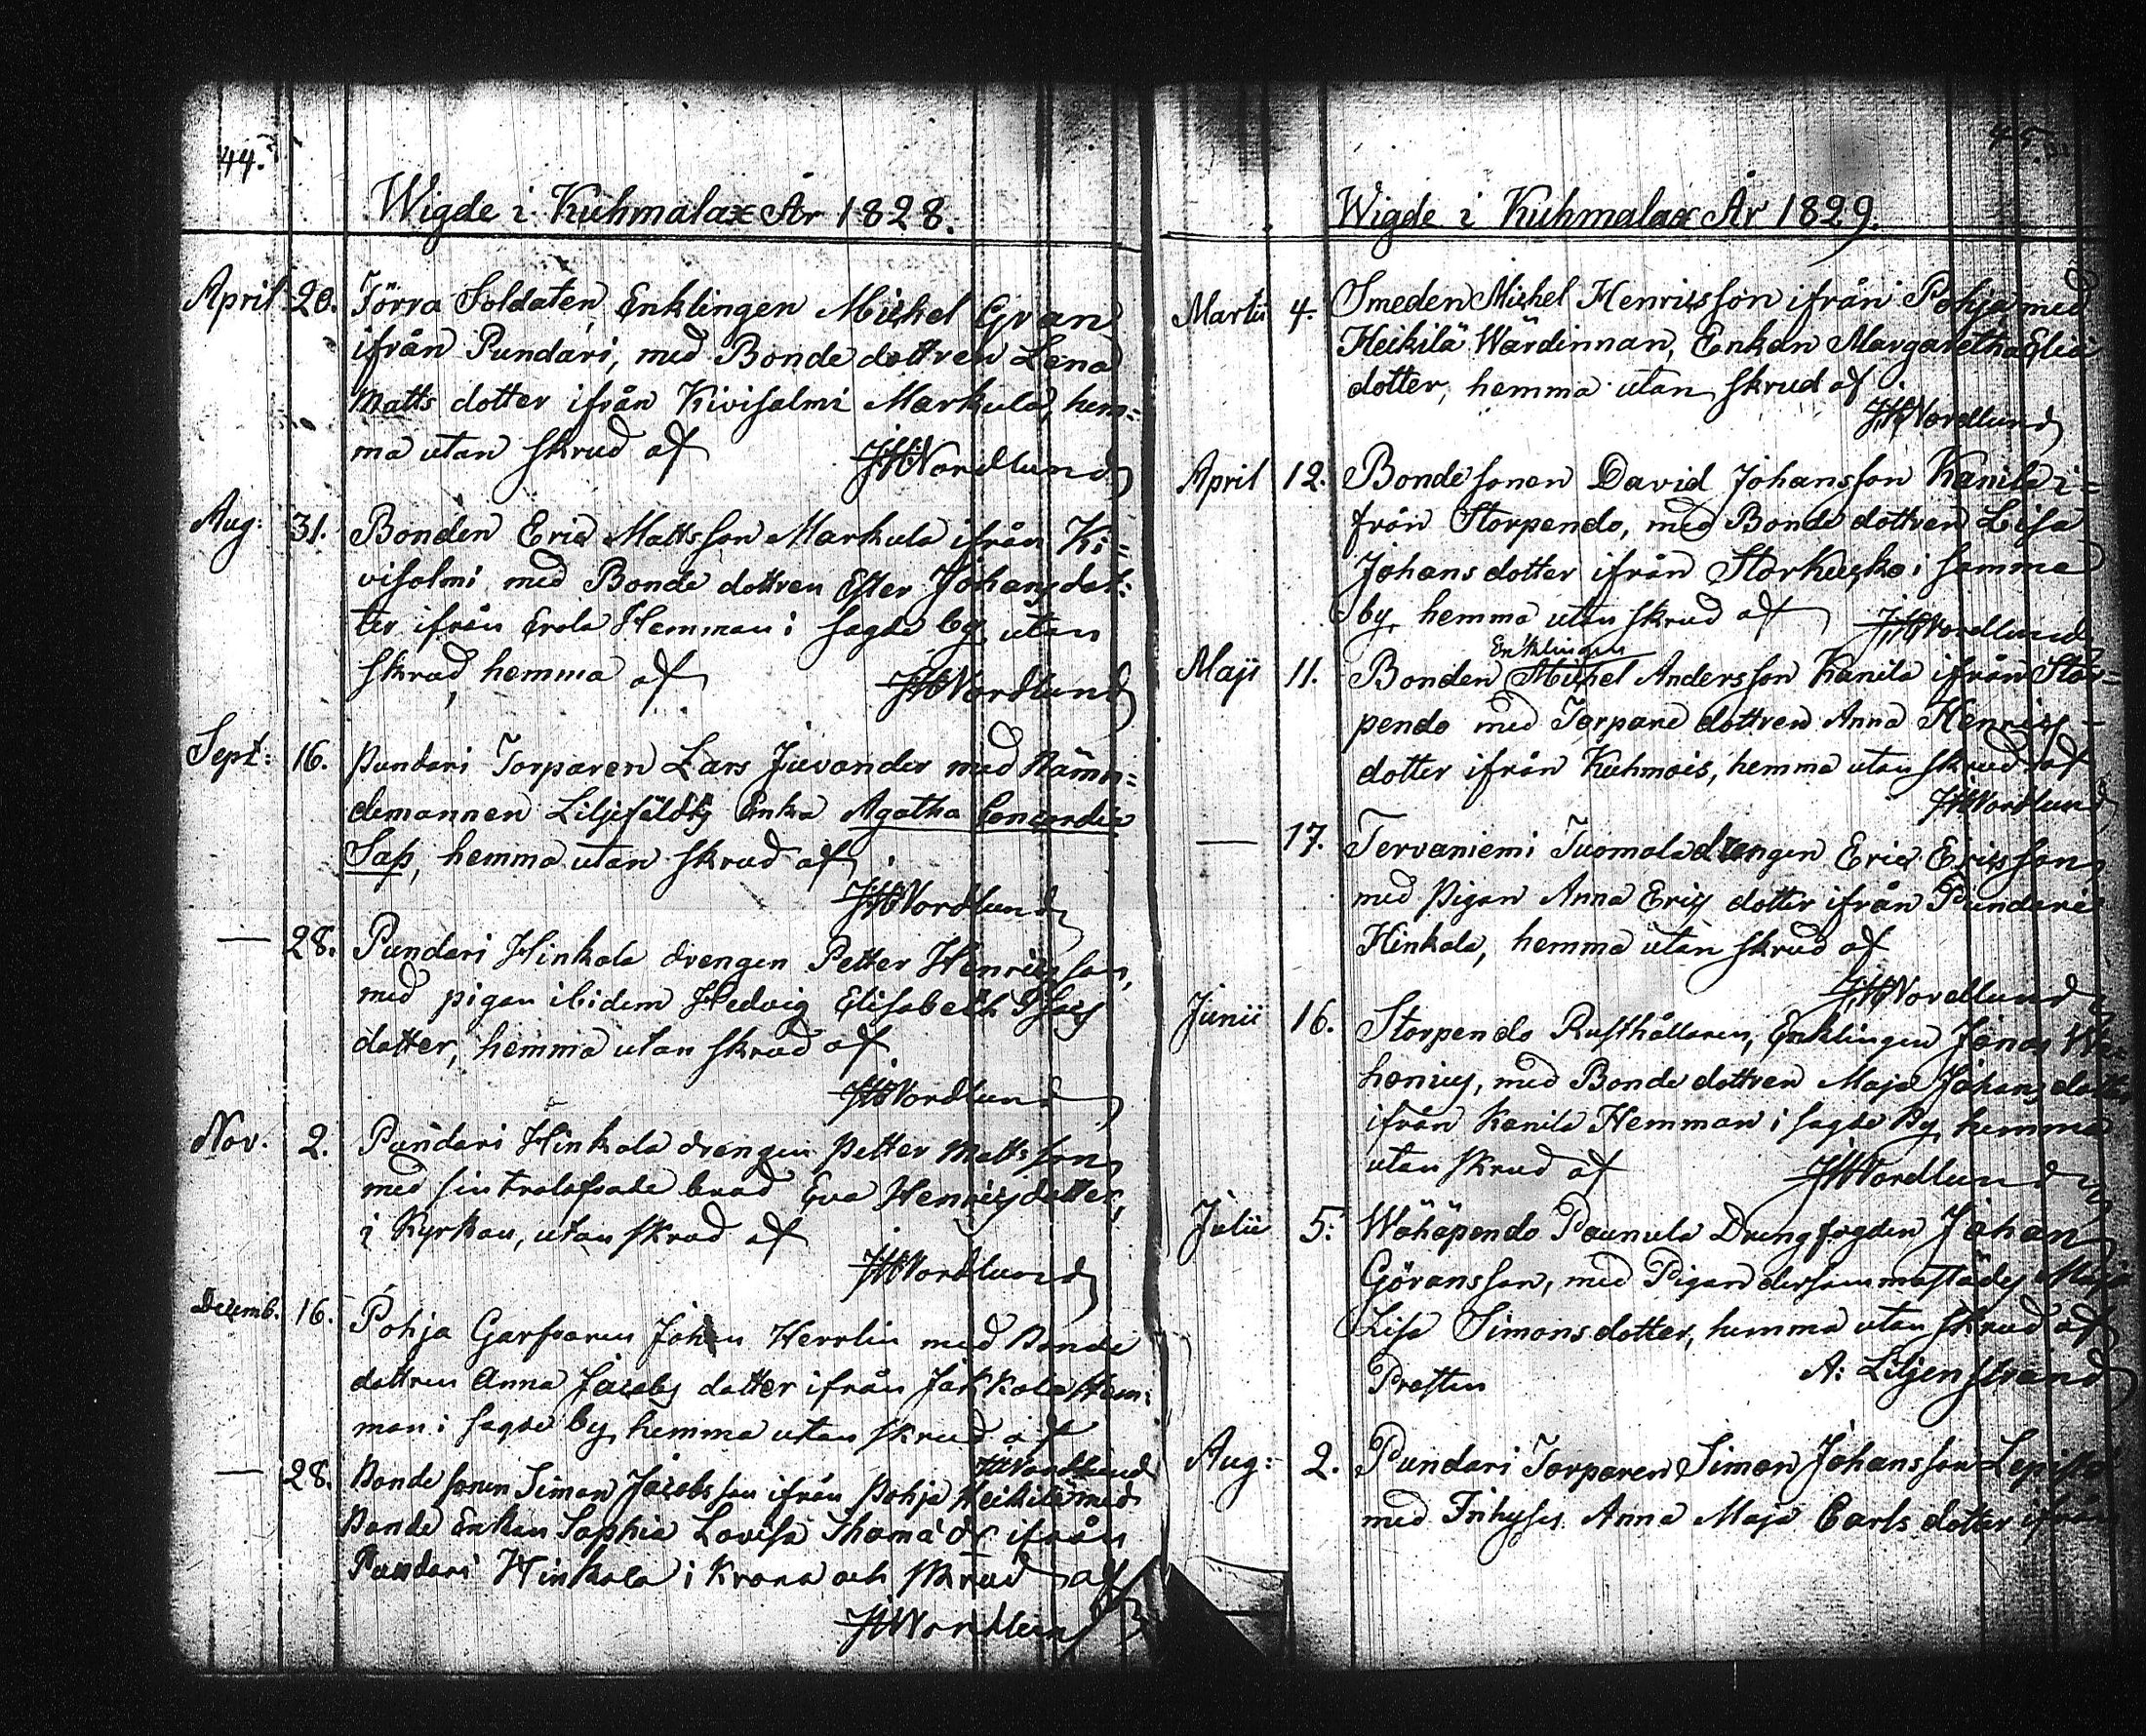 44.
Wigde i Kuhmalax År 1828.
April 20. Förra Soldaten, Enklingen Michel Gran
ifrån Pundari, med Bonde dottren Lena
Matts dotter ifrån Kivisalmi Markula, hem=
ma utan skrud af JHNordlund
Aug: 31. Bonden Eric Mattsson Markula ifrån Ki=
visalmi med Bonde dottren Ester Johans dot:
ter ifrån Erola Hemman i sagde by, utan
skrud, hemma af JHNordlund
Sept: 16. Pundari Torparen Lars Juvander med Nämn=
demannen Liljefäldts Enka Agatha Concordia
Sass, hemma utan skrud af
JHNordlund
— 28. Pundari Hinkala drengen Petter Henricsson,
med pigan ibidem Hedvig Elisabeth Isacs
dotter, hemma utan skrud af
JHNordlund
Nov. 2. Pundari Hinkala drengen Petter Mattsson
med sin trolofvade brud Eva Henricsdotter,
i Kyrkan, utan skrud af
JHNordlund
Decemb. 16. Pohja Garfvaren Johan Herrlin med Bonde
dottren Anna Jacobs dotter ifrån Jakkola Hem:
man i sagde by, hemma utan skrud af
JHNordlund
— 28. Bonde sonen Simon Jacobsson ifrån Pohja Heikilä med
Bonde Enkan Sophia Lovisa Thomæ dr ifrån
Pundari Hinkala i Krona och skrud af
JHNordlund
45.
Wigde i Kuhmalax År 1829.
Martii 4. Smeden Michel Henricsson ifrån Pohja med
Heikilä Wärdinnan, Enkan Margaretha Eliæ
dotter, hemma utan skrud af
JHNordlund
April 12. Bonde sonen David Johansson Kanila i=
från Storpendo, med Bonde dottren Lisa
Johans dotter ifrån Storkusko i samma
by, hemma utan skrud af JHNordlund
Enklingen
Maji 11. Bonden Michel Andersson Kanila ifrån Stor=
pendo med Torpare dottren Anna Henrics-
dotter ifrån Kuhmois, hemma utan skrud af
JHNordlund
— 17. Tervaniemi Tuomala drengen Eric Ericsson,
med Pigan Anna Erics dotter ifrån Pundari
Hinkala, hemma utan skrud af
JHNordlund
Junii 16. Storpendo Rusthållaren, Enklingen Jonas
med Bonde dottren Maja Johans dotter
ifrån Kanila Hemman i sagde By, hemma
utan skrud af JHNordlund
Julii 5. Wähäpendo Paunula Drengfogden Johan
Göransson, med Pigan dersammastädes Maja
Lisa Simons dotter, hemma utan skrud af
Prosten A: Liljenstrand
Aug: 2. Pundari Torparen Simon Johansson Lepistö
med Inhyses Anna Maja Carls dotter ifrån